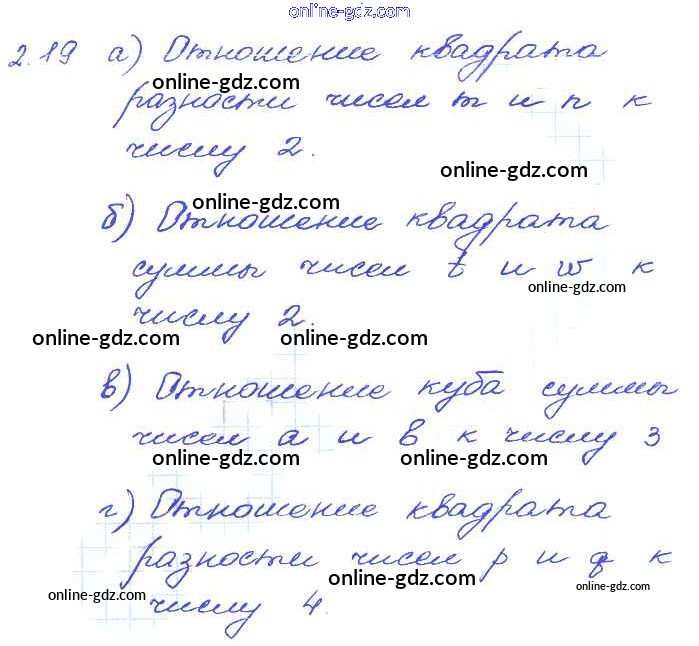 online-gdz.com
2.19 а) Отношение квадрата
online-gdz.com
разности чисел m и n к
числу 2.
online-gdz.com
online-gdz.com
б) Отношение квадрата
суммы чисел t и w к
online-gdz.com
числу 2.
online-gdz.com
online-gdz.com
в) Отношение куба суммы
чисел a и b к числу 3
online-gdz.com
online-gdz.com
г) Отношение квадрата
разности чисел p и q к
online-gdz.com
online-gdz.com
online-gdz.com
числу 4.